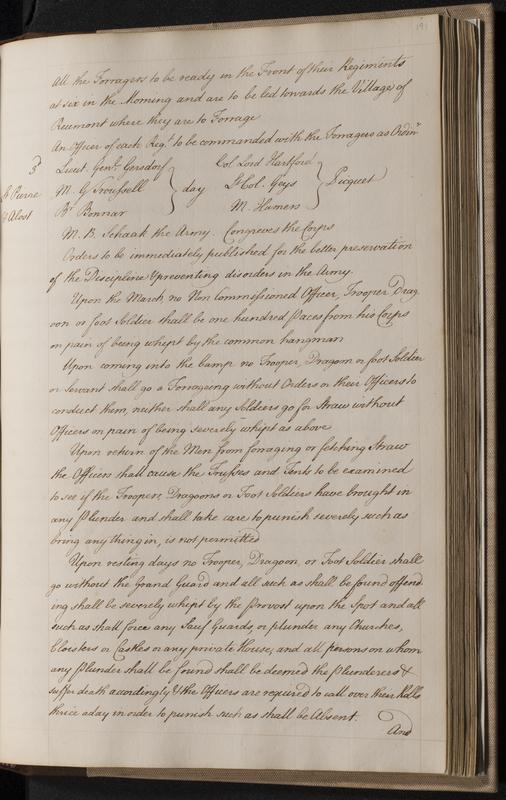 191
All the Forragers to be ready in the Front of their Regiments
at six in the Morning and are to be led towards the Village of
Reumont where they are to Forrage
An Officer of each Regt. to be commanded with the Forragers as Ordinry
3 Lieut. Genl. Gersdorf Col. Lord Hartford
St Pierre M. G. Troussell day Lt Col. Geys Picquet
Alost Br. Bonnar M. Humers
M. B. Schaak the Army. Congreves the Corps
Orders to be immediately published for the better preservation
of the Discipline & preventing disorders in the Army.
Upon the March no Non Commissioned Officer, Trooper Drag
oon or foot Soldier shall be one hundred Paces from his Corps
on pain of being whipt by the common hangman
Upon coming into the Camp no Trooper, Dragoon or foot Soldier
or Servant shall go a Forrogeing without Orders or their Officers to
conduct them, neither shall any Soldiers go for Straw without
Officers on pain of being severely whipt as above
Upon return of the Men from forraging or fetching Straw
the Officers shall cause the Trusses and Tents to be examined
to see if the Troopers, Dragoons or Foot Soldiers have brought in
any Plunder and shall take care to punish severely such as
bring any thing in, is not permitted
Upon resting days no Trooper, Dragoon, or Foot Soldier shall
go without the Grand Guard and all such as shall be found offend
ing shall be severely whipt by the Provost upon the Spot and all
such as shall force any Sauf Guards, or plunder any Churches,
Cloisters or Castles or any private House, and all persons on whom
any Plunder shall be found shall be deemed the Plunderers &
suffer death accordingly & the Officers are required to call over their Rolls
thrice a day in order to punish such as shall be Absent.
And